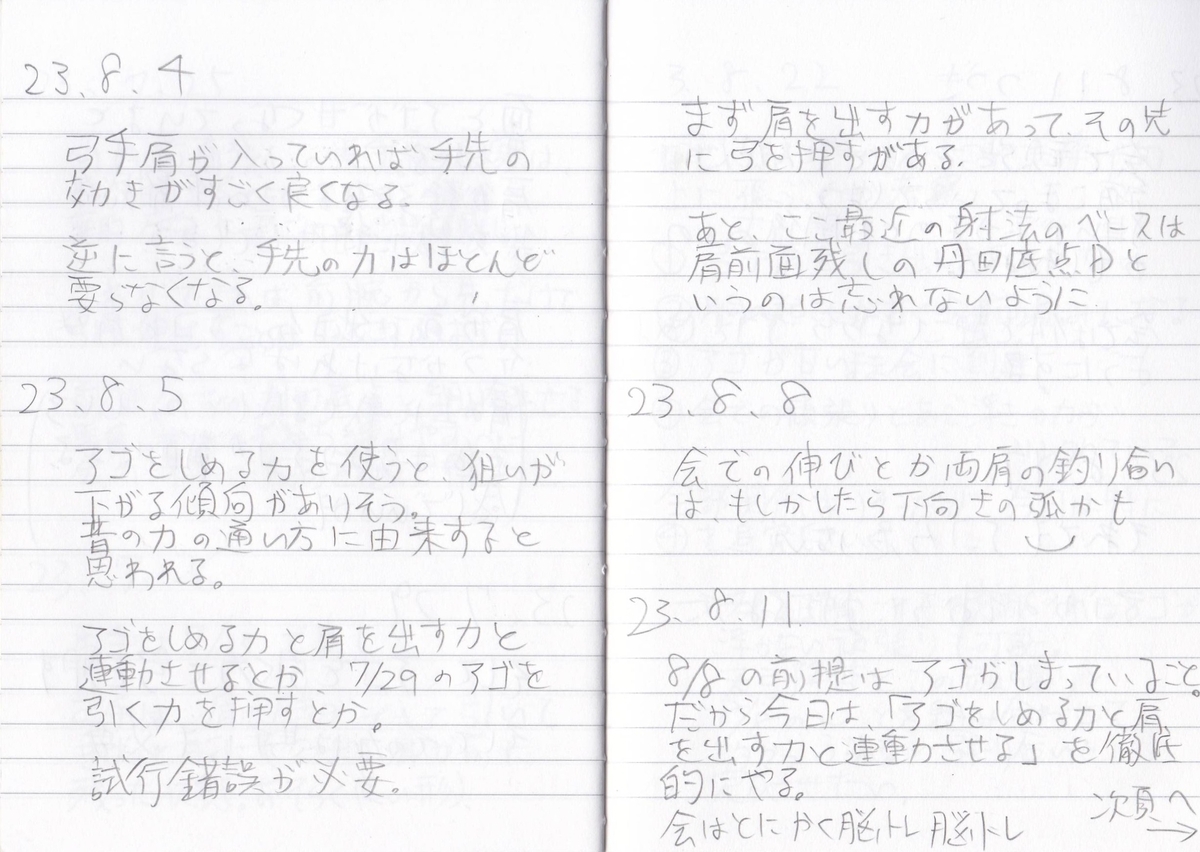 23.8.4
弓手肩が入っていれば手先の
効きがすごく良くなる。
逆に言うと、手先の力はほとんど
要らなくなる。
23.8.5
アゴをしめる力を使うと、狙いが
下がる傾向がありそう。
昔の力の通い方に由来すると
思われる。
アゴをしめる力と肩を出す力と
連動させるとか、7/29のアゴを
引く力を押すとか。
試行錯誤が必要。
まず肩を出す力があって、その先
に弓を押すがある。
あと、ここ最近の射法のベースは
肩前面残しの丹田底点Dと
いうのは忘れないように
23.8.8
会での伸びとか両肩の釣り合い
は、もしかしたら下向きの弧かも
23.8.11
8/8の前提はアゴがしまっていること。
だから今日は、「アゴをしめる力と肩
を出す力と連動させる」を徹底
的にやる。
会はとにかく脳トレ脳トレ
次頁へ
→